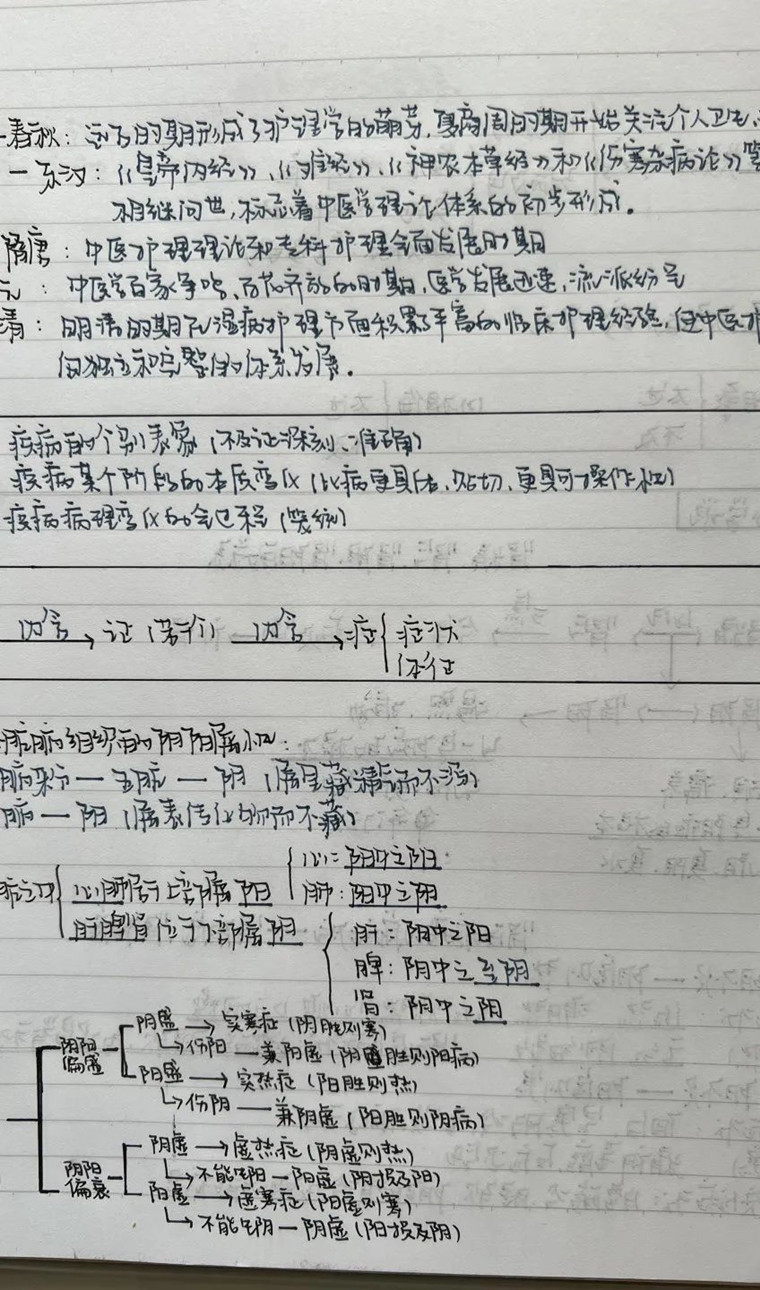 春秋：这一时期形成了护理学的萌芽，夏商周时期开始关注个人卫生、
一东汉：《黄帝内经》、《难经》、《神农本草经》和《伤寒杂病论》等
相继问世，标志着中医学理论体系的初步形成。
隋唐：中医护理理论和专科护理全面发展时期
元：中医学百家争鸣、百花齐放的时期，医学发展迅速，流派纷呈
清：明清时期在温病护理方面积累丰富的临床护理经验，使中医护
向独立和完整的体系发展。
疾病的个别表象（不及证深刻、准确）
疾病某个阶段的本质变化（比病更具体、贴切、更具可操作性）
疾病病理变化的全过程（笼统）
内含→证（若干个）内含→症{症状
体征
脏腑组织的阴阳属性：
腑来分一五脏一阴（属里藏精气而不泻）
腑一阳（属表传化物而不藏）
心：阳中之阳
心肺居于上部属阳 肺：阳中之阴
肝脾肾位于下部属阴 肝：阴中之阳
脾：阴中之至阴
肾：阴中之阴
阴盛→实寒症（阴胜则寒）
阴阳偏盛
↳伤阳一兼阳虚（阴胜则阳病）
阳盛→实热症（阳胜则热）
↳伤阴一兼阴虚（阳胜则阴病）
阴虚→虚热症（阴虚则热）
阴阳偏衰
↳不能生阳一阳虚（阴损及阳）
阳虚→虚寒症（阳虚则寒）
↳不能生阴一阴虚（阳损及阴）